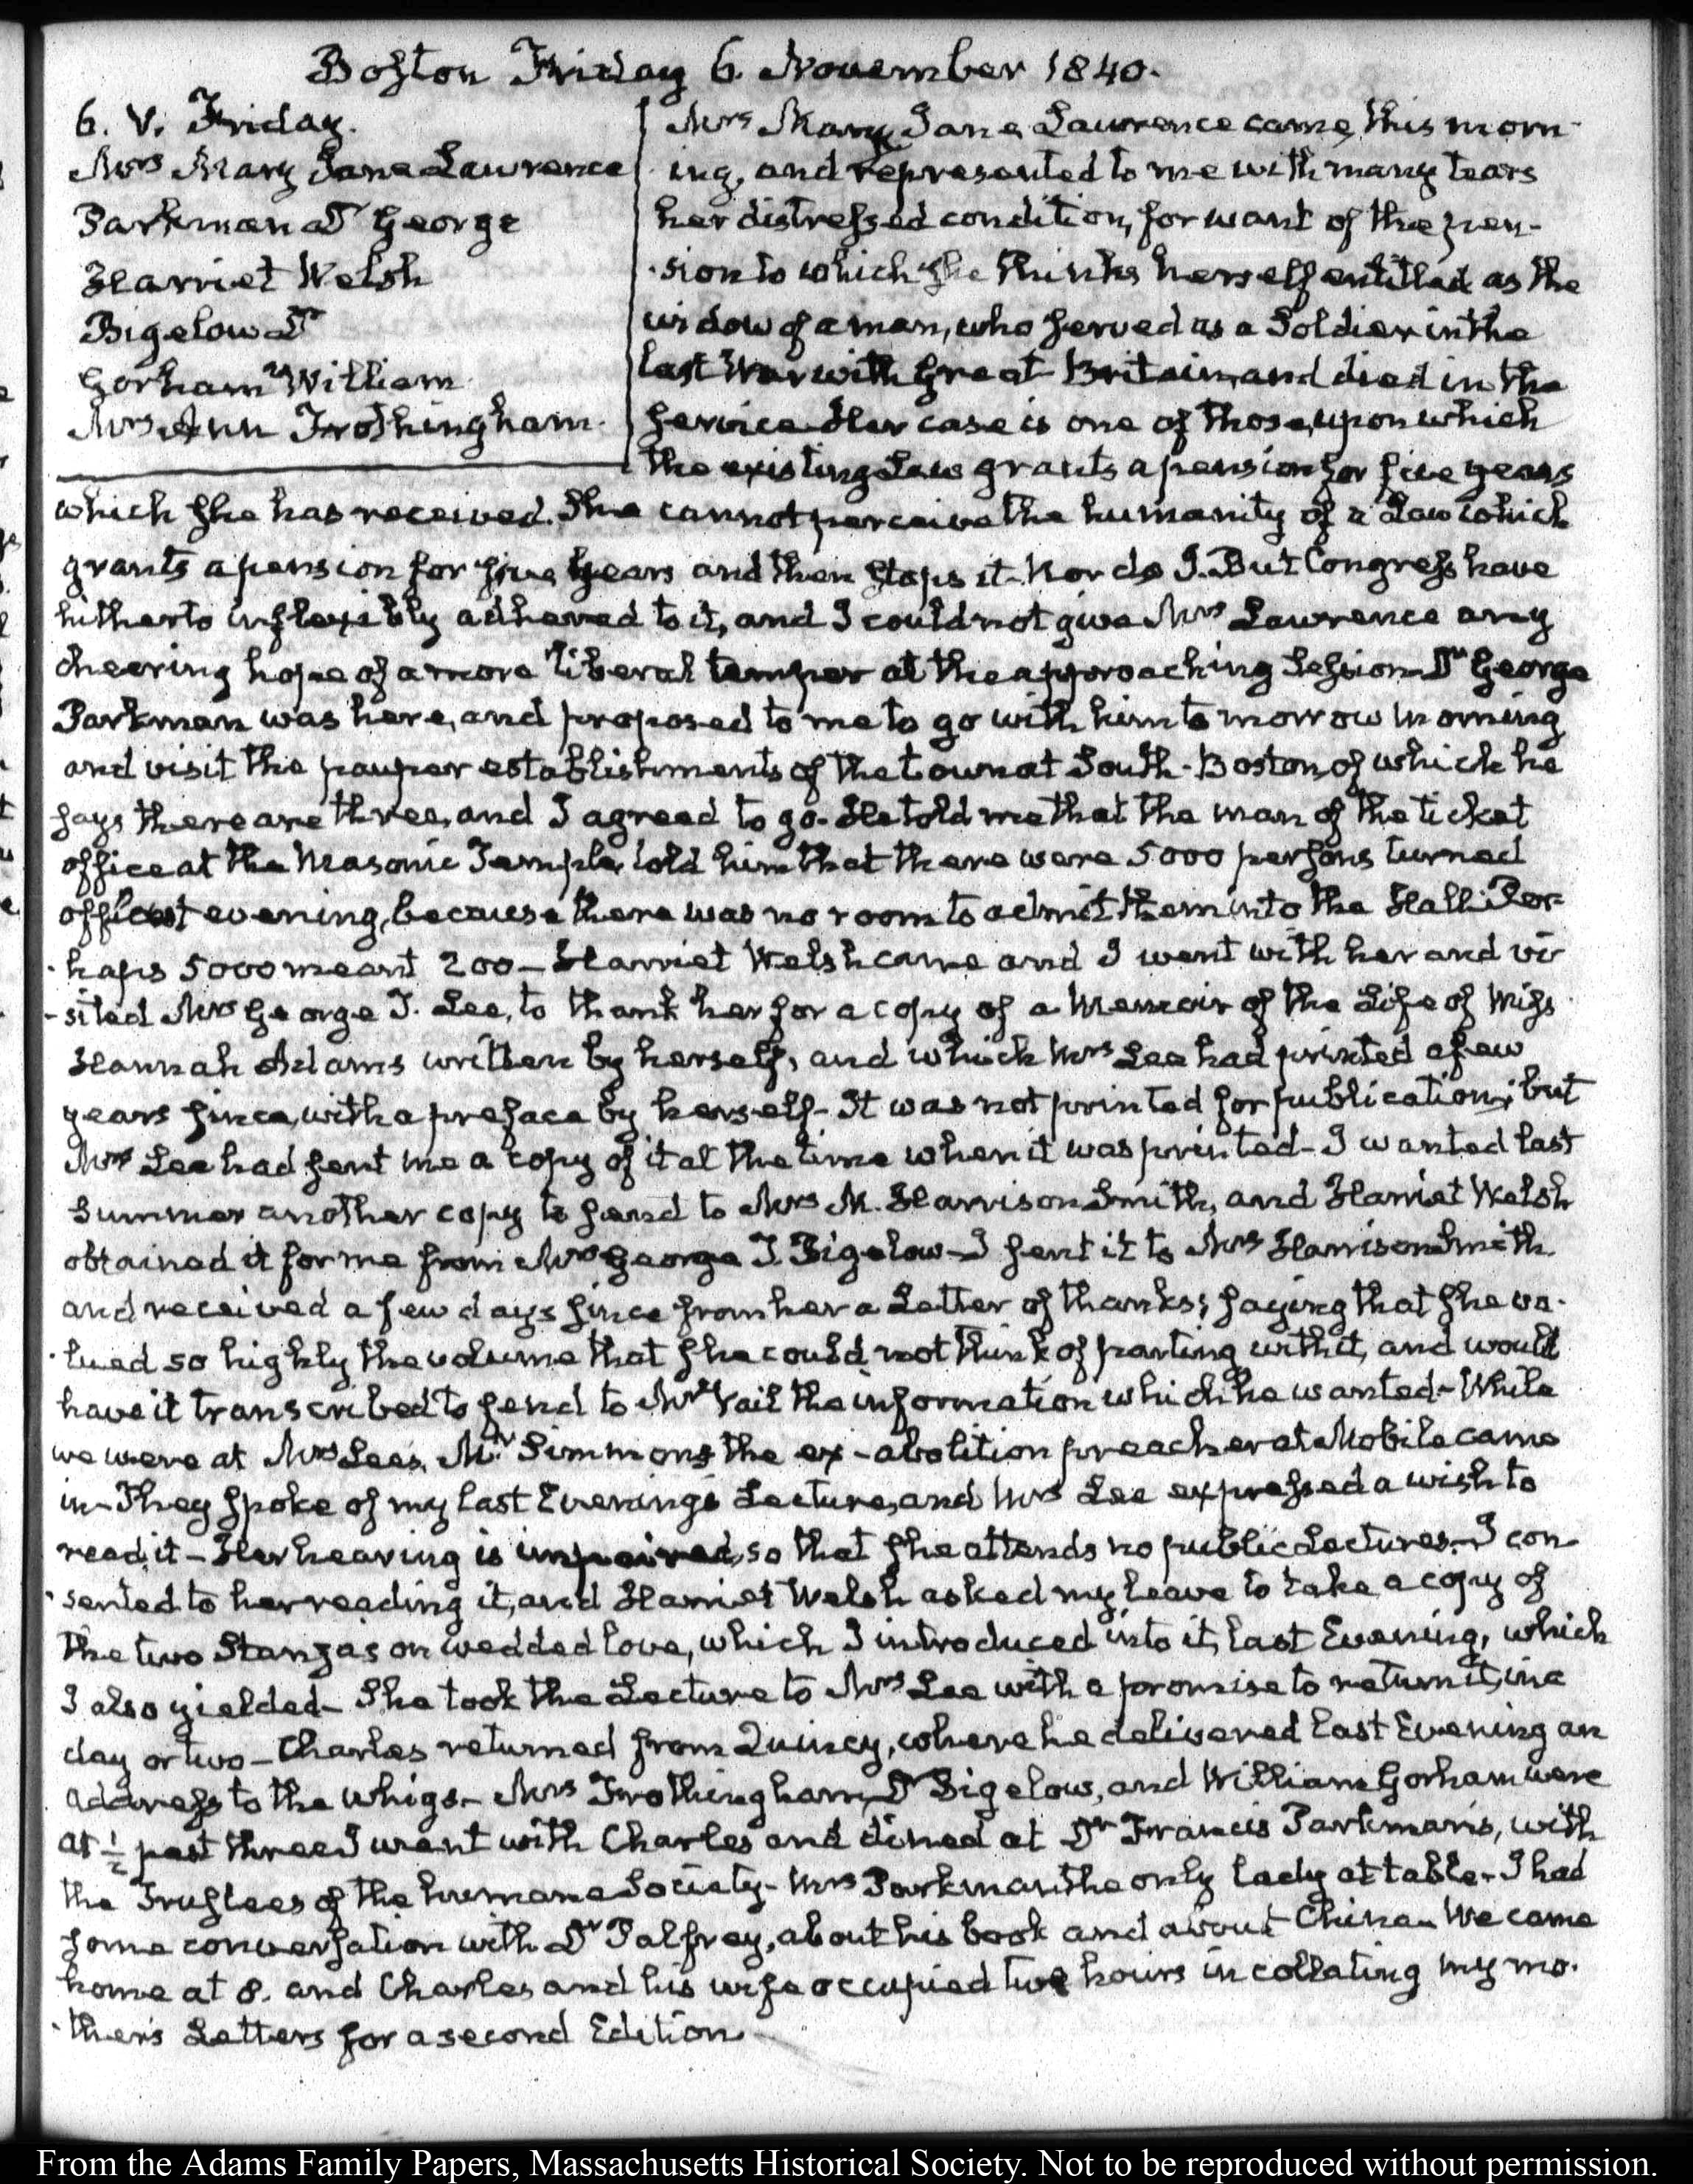 Boston Friday 6. November 1840.
6. V. Friday.
Mrs Mary Jane Lawrence
Parkman Dr George
Harriet Welsh
Bigelow Dr
Gorham William
Mrs Ann Frothingham.
Mrs Mary Jane Lawrence came this morn-
ing, and represented to me with many tears
her distressed condition, for want of the pen-
-sion to which she thinks herself entitled as the
widow of a man, who served as a Soldier in the
last War with Great Britain, and died in the
service. Her case is one of those, upon which
the existing Law grants a pension for five years
which she has received. She cannot perceive the humanity of a Law which
grants a pension for five years and then stops it. Nor do I. But Congress have
hitherto inflexibly adhered to it, and I could not give Mrs Lawrence any
cheering hope of a more liberal temper at the approaching Session. Dr George
Parkman was here, and proposed to me to go with him to morrow morning
and visit the pauper establishments of the town at South-Boston, of which he
says there are three, and I agreed to go. He told me that the man of the ticket
office at the Masonic Temple, told him that there were 5000 persons turned
off last evening, because there was no room to admit them into the Hall. Per-
-haps 5000 meant 200 - Harriet Welsh came and I went with her and vi-
-sited Mrs George T. Lee, to thank her for a copy of a Memoir of the Life of Miss
Hannah Adams written by herself, and which Mrs Lee had printed a few
years since, with a preface by herself - It was not printed for publication; but
Mrs Lee had sent me a copy of it at the time when it was printed - I wanted last
Summer another copy to send to Mrs M. Harrison Smith, and Harriet Welsh
obtained it for me from Mrs George T. Bigelow - I sent it to Mrs Harrison Smith
and received a few days since from her a Letter of thanks; saying that she va-
-lued so highly the volume that she could not think of parting with it, and would
have it transcribed to send to Mr Vail the information which he wanted - While
we were at Mrs Lee's, Mr Simmons the ex-abolition preacher at Mobile came
in - They spoke of my last Evening's Lecture, and Mrs Lee expressed a wish to
read it - Her hearing is impaired, so that she attends no public Lectures - I con-
-sented to her reading it, and Harriet Welsh asked my leave to take a copy of
the two Stanzas on wedded love, which I introduced into it, last Evening, which
I also yielded - She took the Lecture to Mrs Lee with a promise to return it, in a
day or two - Charles returned from Quincy, where he delivered last Evening an
address to the Whigs - Mrs Frothingham, Dr Bigelow, and William Gorham were
At ½ past three I went with Charles and dined at Dr Francis Parkman's, with
the Trustees of the humane Society - Mrs Parkman the only lady at table - I had
some conversation with Dr Palfrey, about his book and about China - We came
home at 8. and Charles and his wife occupied two hours in collating my mo-
-ther's Letters for a second Edition -
From the Adams Family Papers, Massachusetts Historical Society. Not to be reproduced without permission.